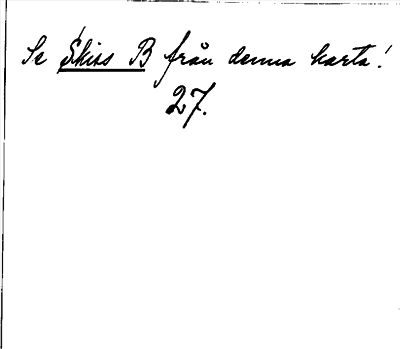 Se Skiss B från denna karta!
27.